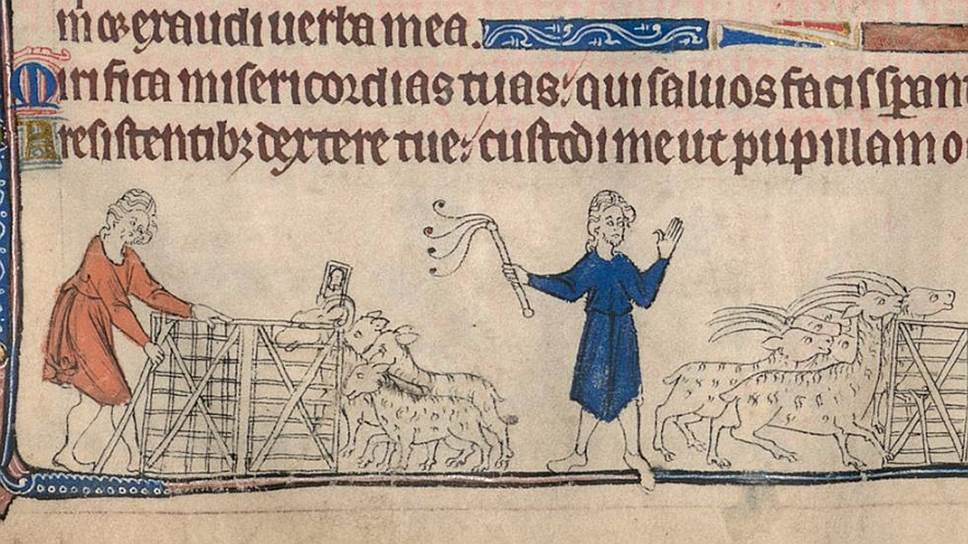 ⁊ exaudi uerba mea.
Mirifica misericordias tuas: qui saluos facis sꝑan
A resistentibꝫ dextere tue: custodi me ut pupillam o